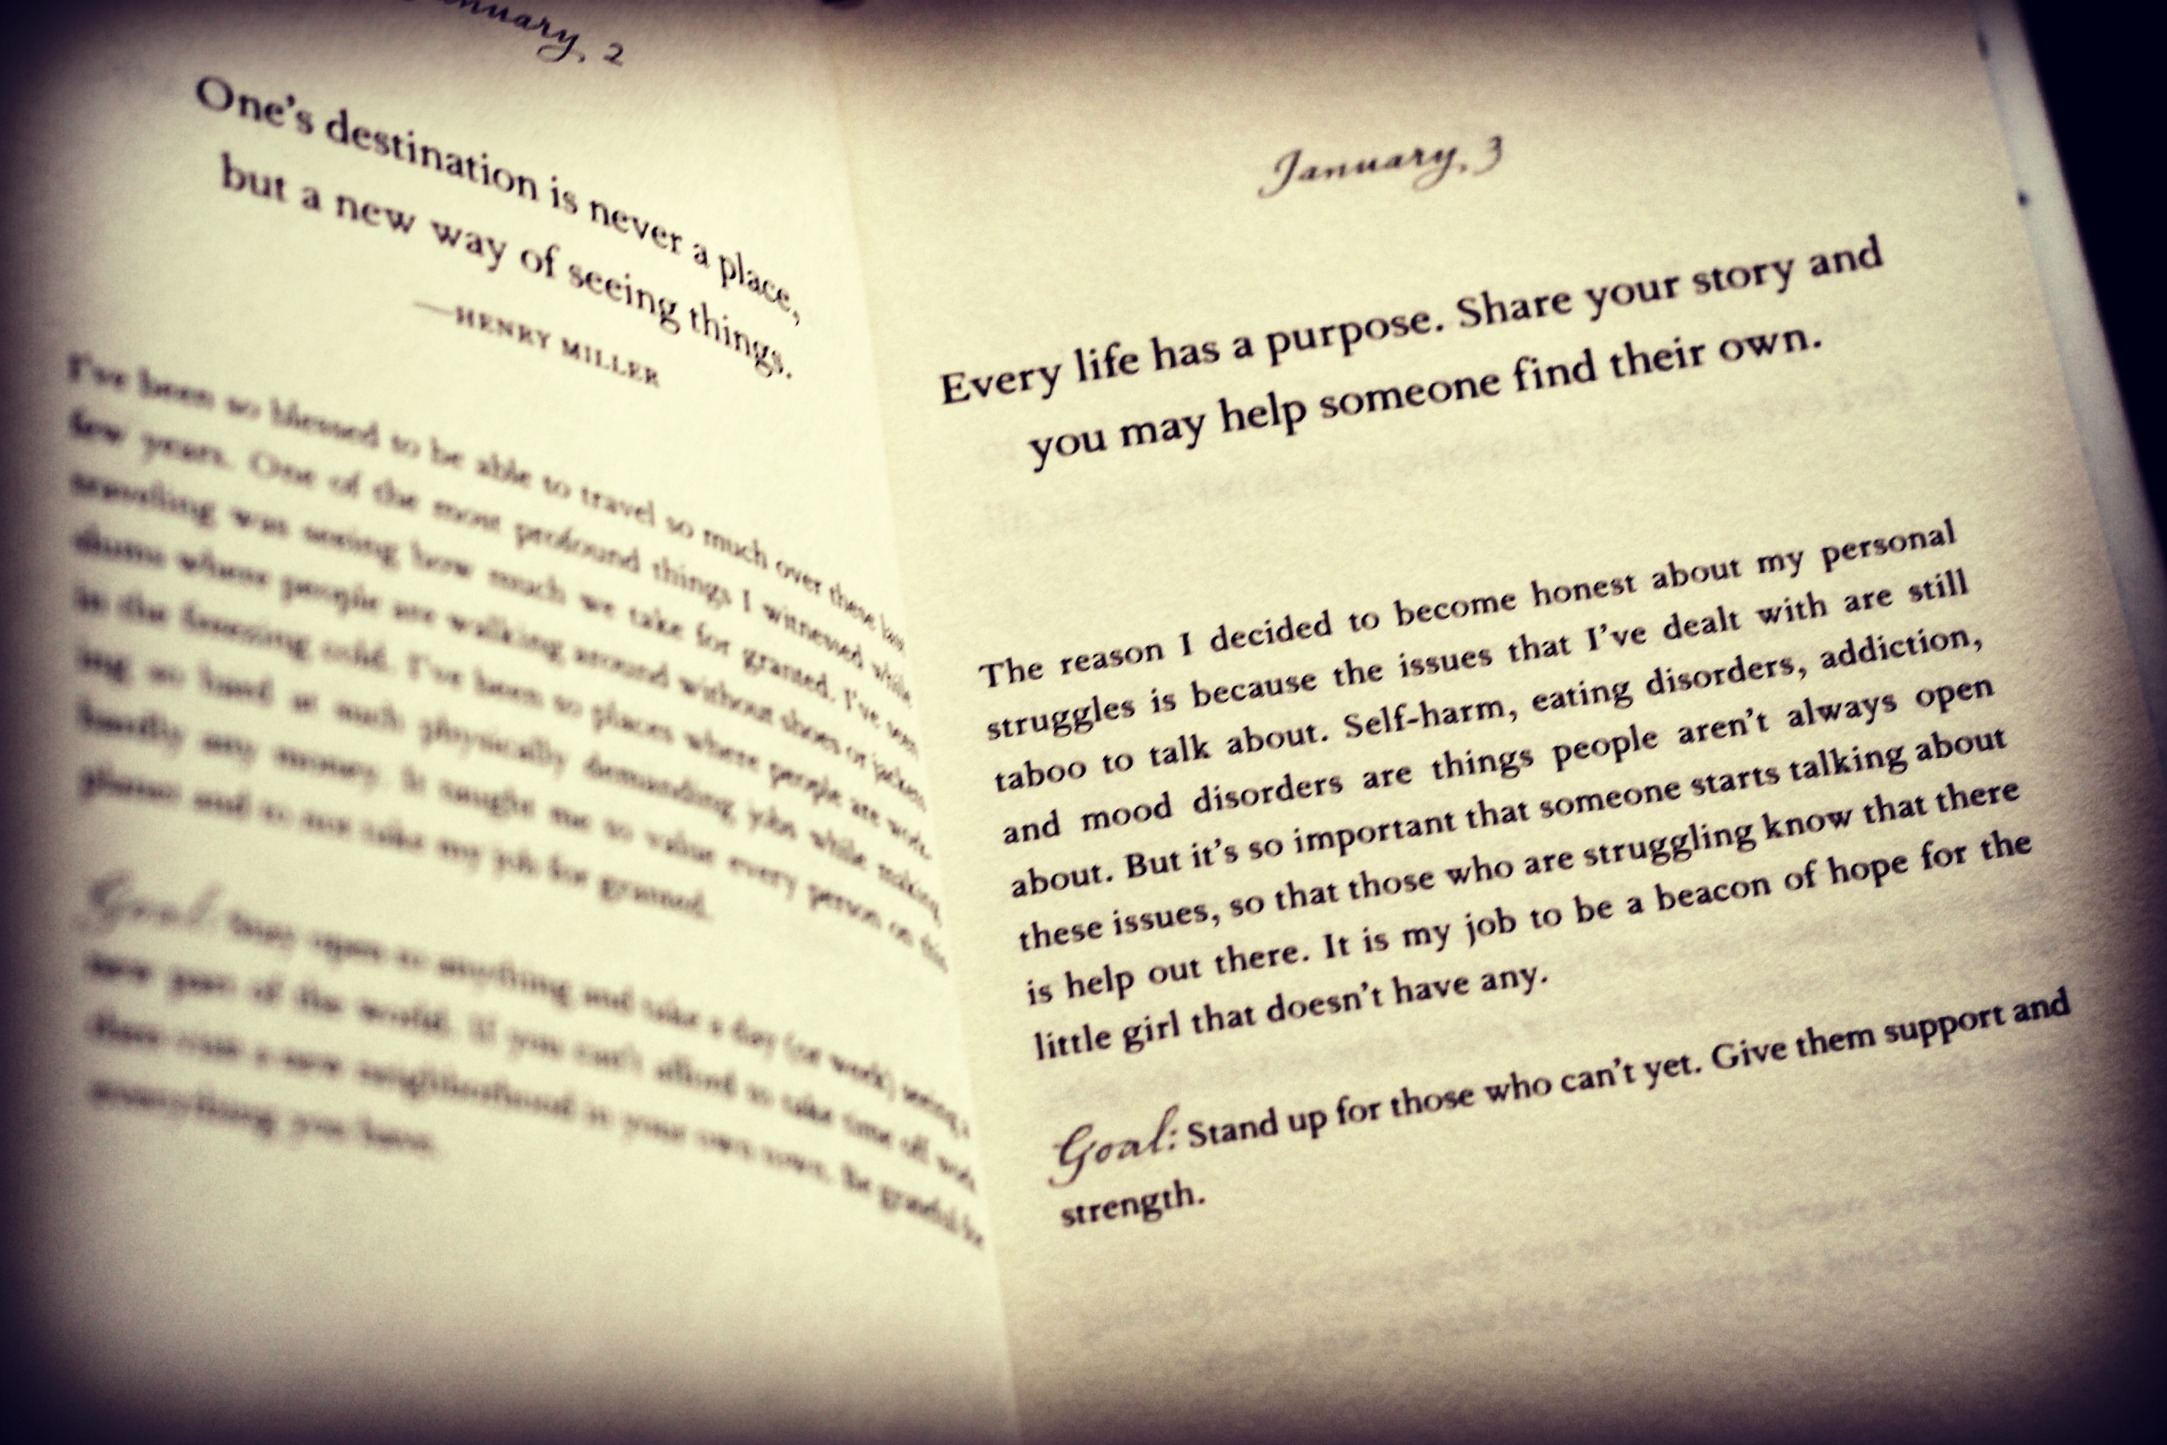 January, 2
One's destination is never a place,
but a new way of seeing things.
—HENRY MILLER
I've been so blessed to be able to travel so much over these last
few years. One of the most profound things I witnessed while
traveling was seeing how much we take for granted. I've seen
slums where people are walking around without shoes or jackets
in the freezing cold. I've been to places where people are work-
ing so hard at such physically demanding jobs while making
hardly any money. It taught me to value every person on this
planet and to not take my job for granted.
Goal: Stay open to anything and take a day (or week) seeing a
new part of the world. If you can't afford to take time off work
then visit a new neighborhood in your own town. Be grateful for
everything you have.
January, 3
Every life has a purpose. Share your story and
you may help someone find their own.
The reason I decided to become honest about my personal
struggles is because the issues that I've dealt with are still
taboo to talk about. Self-harm, eating disorders, addiction,
and mood disorders are things people aren't always open
about. But it's so important that someone starts talking about
these issues, so that those who are struggling know that there
is help out there. It is my job to be a beacon of hope for the
little girl that doesn't have any.
Goal: Stand up for those who can't yet. Give them support and
strength.